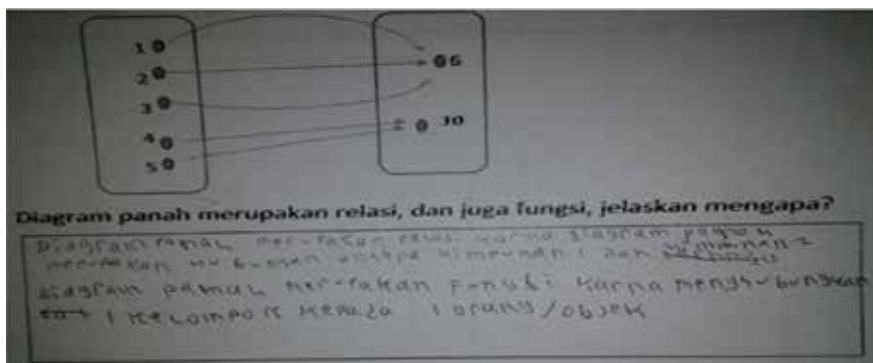 1
6
2
3
4
10
5
Diagram panah merupakan relasi, dan juga fungsi, jelaskan mengapa?
Diagram panah merupakan relasi karna diagram panah
merupakan hubungan antara himpunan 1 dan himpunan 2
diagram panah merupakan Fungsi karna menghubungkan
1 kelompok kepada 1 orang/objek